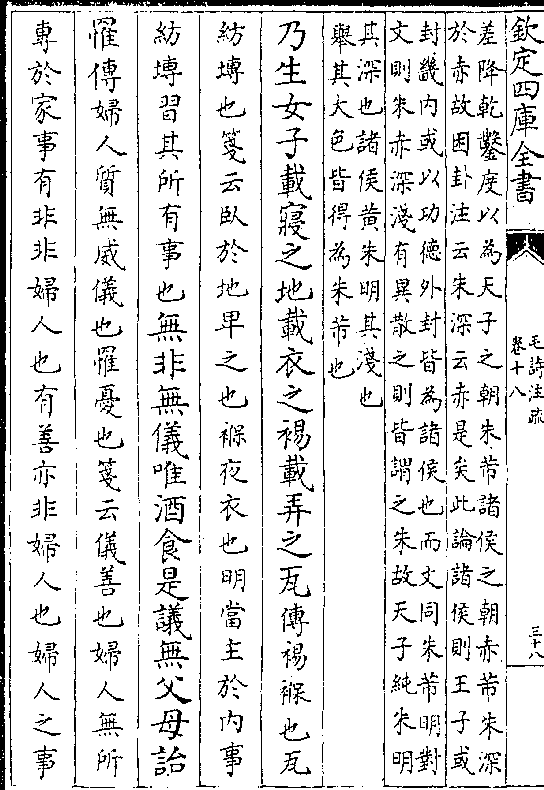 欽定四庫全書
毛詩注疏
卷十八
三十八
差降乾鑿度以為天子之朝朱芾諸侯之朝赤芾朱深
於赤故困卦注云朱深云赤是矣此論諸侯則王子或
封畿内或以功德外封皆為諸侯也而文同朱芾明對
文則朱赤深淺有異散之則皆謂之朱故天子純朱明
其深也諸侯黄朱明其淺也
舉其大色皆得為朱芾也
乃生女子載寢之地載衣之裼載弄之瓦傳裼褓也瓦
紡塼也箋云卧於地卑之也褓夜衣也明當主於内事
紡塼習其所有事也無非無儀唯酒食是議無父母詒
罹傳婦人質無威儀也罹憂也箋云儀善也婦人無所
專於家事有非非婦人也有善亦非婦人也婦人之事